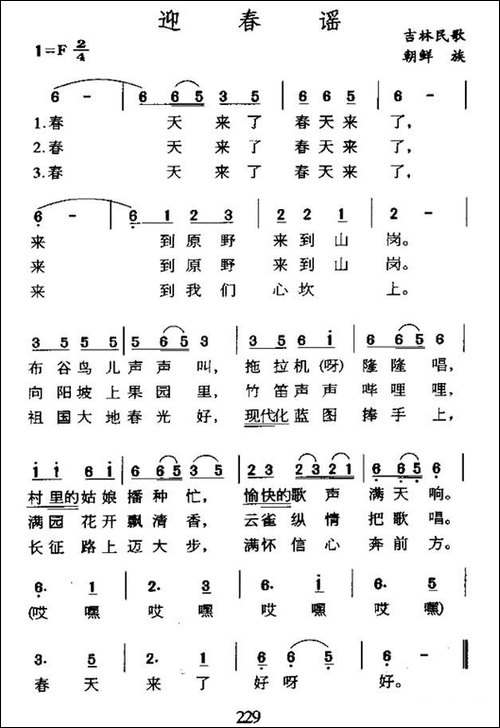 迎春谣
1=F 2/4
吉林民歌
朝鲜族
6 - | 6 665 35 | 66 65 | 6 - |
1.春 天来了 春天来了,
2.春 天来了 春天来了,
3.春 天来了 春天来了,
6 - | 6 1 2 3 | 2 2 1 | 2 - |
来 到原野 来到山岗。
来 到原野 来到山岗。
来 到我们 心坎上。
布谷鸟儿声声叫, 拖拉机(呀)隆隆唱,
向阳坡上果园里, 竹笛声声哗哩哩,
祖国大地春光好, 现代化蓝图捧手上,
村里的姑娘播种忙, 愉快的歌声满天响。
满园花开飘清香, 云雀纵情把歌唱。
长征路上迈大步, 满怀信心奔前方。
6. 1 | 2. 3 | 6. i | 6. 5 |
(哎嘿 哎嘿 哎嘿 哎嘿)
3. 5 | 2. 1 | 6 6 5 | 6. 0 ‖
春天来了好呀好。
229